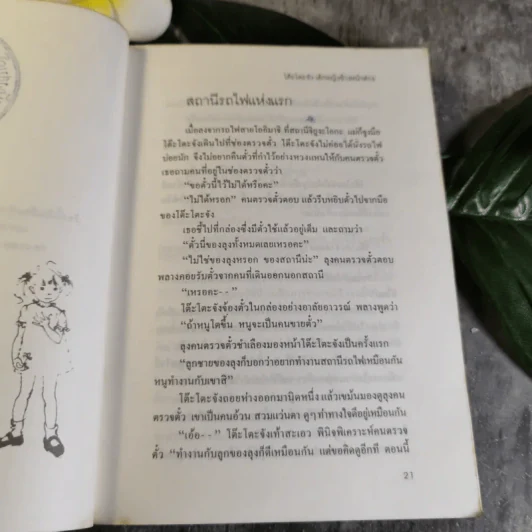 โต๊ะโตะจัง เด็กหญิงข้างหน้าต่าง
สถานีรถไฟแห่งแรก
เมื่อลงจากรถไฟสายโออิมาชิ ที่สถานีจิยูงะโอกะ แม่ก็จูงมือ
โต๊ะโตะจังเดินไปที่ช่องตรวจตั๋ว โต๊ะโตะจังไม่ค่อยได้นั่งรถไฟ
บ่อยนัก จึงไม่อยากคืนตั๋วที่กำไว้อย่างหวงแหนให้กับคนตรวจตั๋ว
เธอถามคนที่อยู่ในช่องตรวจตั๋วว่า
“ขอตั๋วนี้ไว้ไม่ได้หรือคะ”
“ไม่ได้หรอก” คนตรวจตั๋วตอบ แล้วรีบหยิบตั๋วไปจากมือ
ของโต๊ะโตะจัง
เธอชี้ไปที่กล่องซึ่งมีตั๋วใช้แล้วอยู่เต็ม และถามว่า
“ตั๋วนี่ของลุงทั้งหมดเลยเหรอคะ”
“ไม่ใช่ของลุงหรอก ของสถานีน่ะ” ลุงคนตรวจตั๋วตอบ
พลางคอยรับตั๋วจากคนที่เดินออกนอกสถานี
“เหรอคะ--”
โต๊ะโตะจังจ้องตั๋วในกล่องอย่างอาลัยอาวรณ์ พลางพูดว่า
“ถ้าหนูโตขึ้น หนูจะเป็นคนขายตั๋ว”
ลุงคนตรวจตั๋วชำเลืองมองหน้าโต๊ะโตะจังเป็นครั้งแรก
“ลูกชายของลุงก็บอกว่าอยากทำงานสถานีรถไฟเหมือนกัน
หนูทำงานกับเขาสิ”
โต๊ะโตะจังถอยห่างออกมานิดหนึ่ง แล้วเขม้นมองดูลุงคน
ตรวจตั๋ว เขาเป็นคนอ้วน สวมแว่นตา ดูๆ ท่าทางใจดีอยู่เหมือนกัน
“เอ้อ--” โต๊ะโตะจังเท้าสะเอว พินิจพิเคราะห์คนตรวจ
ตั๋ว “ทำงานกับลูกของลุงก็ดีเหมือนกัน แต่ขอคิดดูอีกที ตอนนี้
21